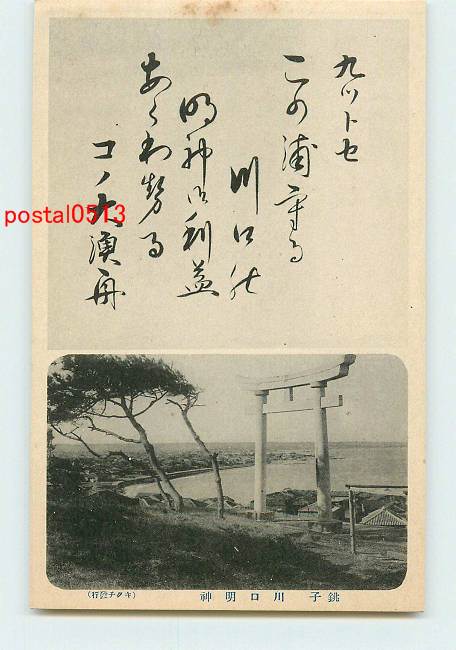 九ツトセ
この浦守る
川口の
明神御利益
あらわせる
コノ大漁舟
postal0513
銚子 川口明神
(キクチ發行)